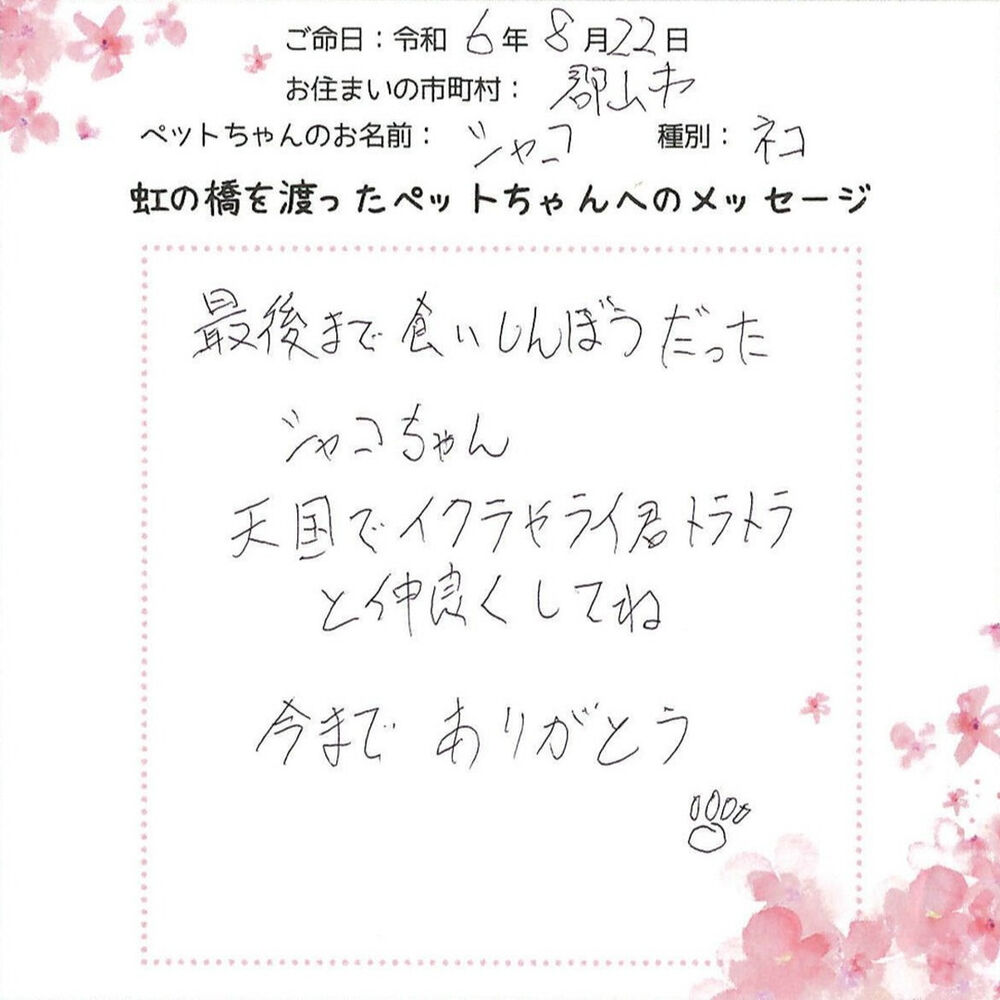 ご命日：令和 6年 8月22日
お住まいの市町村： 郡山市
ペットちゃんのお名前： ジャコ 種別： ネコ
虹の橋を渡ったペットちゃんへのメッセージ
最後まで食いしんぼうだった
ジャコちゃん
天国でイクラやライ君トラトラ
と仲良くしてね
今までありがとう